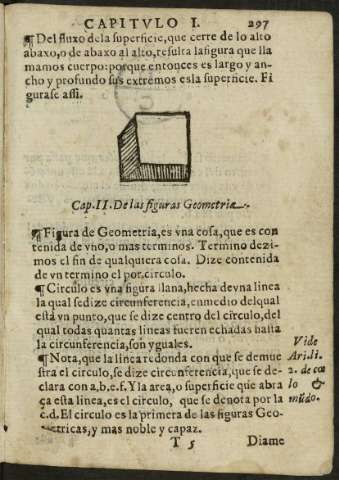 CAPITVLO I. 297
¶ Del fluxo dela superficie, que cerre de lo alto
abaxo, o de abaxo al alto, resulta la figura que lla
mamos cuerpo: porque entonces es largo y an-
cho y profundo sus extremos es la superficie. Fi
gurase assi.
Cap. II. De las figuras Geometriæ.
¶ Figura de Geometria, es vna cosa, que es con
tenida de vno, o mas terminos. Termino dezi-
mos el fin de qualquiera cosa. Dize contenida
de vn termino el por, circulo.
¶ Circulo es vna figura llana, hecha de vna linea
la qual se dize circunferencia, en medio del qual
està vn punto, que se dize centro del circulo, del
qual todas quantas lineas fueren echadas hasta
la circunferencia, son yguales.
¶ Nota, que la linea redonda con que se demue
stra el circulo, se dize circunferencia, que se de-
clara con a.b.e.f. Y la area, o superficie que abra
ça esta linea, es el circulo, que se denota por la
c.d. El circulo es la primera de las figuras Geo-
metricas, y mas noble y capaz.
Vide
Ari. li.
2. de cœ
lo &
mũdo.
T 5 Diame